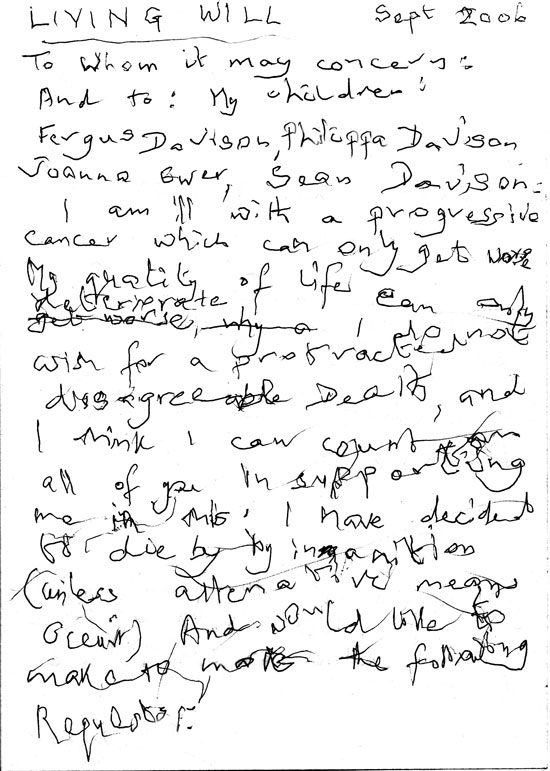 LIVING WILL Sept 2006
To whom it may concern:
And to: My children:
Fergus Davison, Philippa Davison
Joanna Ewer, Sean Davison:
I am ill with a progressive
cancer which can only get worse
My quality of life can only
deteriorate
get worse, why a I do not
wish for a protracted
disagreeable Death, and
I think I can count on
all of you in supporting
me in this. I have decided
to die by by inanition
(unless alternative means
occur) And would like to
make to make the following
Requests: